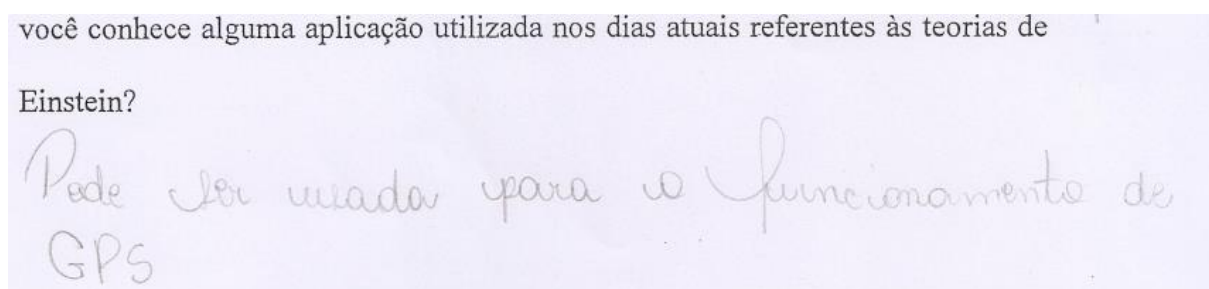 você conhece alguma aplicação utilizada nos dias atuais referentes às teorias de
Einstein?
Pode ser usada para o funcionamento de
GPS